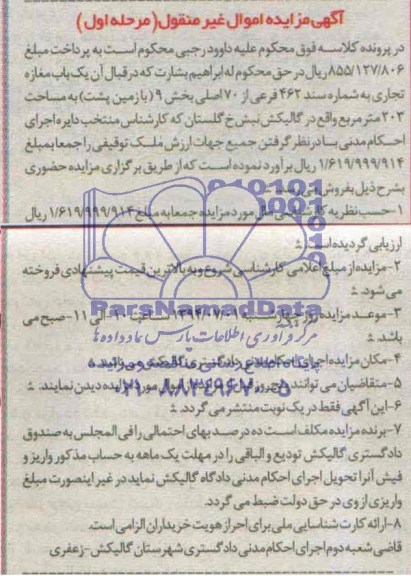 آگهی مزایده اموال غیر منقول (مرحله اول)
در پرونده کلاسه فوق محکوم علیه داوود رجبی محکوم است به پرداخت مبلغ
۸۵۵/۱۲۷/۸۰۶ ریال در حق محکوم له ابراهیم بشارت که در قبال آن یک باب مغازه
تجاری به شماره سند ۴۶۲ فرعی از ۷۰ اصلی بخش ۹ (با زمین پشت) به مساحت
۲۰۳ متر مربع واقع در گالیکش نبش خ گلستان که کارشناس منتخب دایره اجرای
احکام مدنی با در نظر گرفتن جمیع جهات ارزش ملک توقیفی را جمعا به مبلغ
۱/۶۱۹/۹۹۹/۹۱۴ ریال برآورد نموده است که از طریق برگزاری مزایده حضوری
بشرح ذیل بفروش می رسد
۱-حسب نظریه کارشناسی مال مورد مزایده جمعا به مبلغ ۱/۶۱۹/۹۹۹/۹۱۴ ریال
ارزیابی گردیده است.
۲-مزایده از مبلغ اعلامی کارشناسی شروع و به بالاترین قیمت پیشنهادی فروخته
می شود.
۳-موعد مزایده روز ۱۳۹۴/۰۷/۰۱ ساعت ۱۰ الی ۱۱ صبح می
باشد.
ParsNamadData
مرکز فرآوری اطلاعات پارس نماد داده ها
۴-مکان مزایده اجرای احکام مدنی دادگستری گالیکش می باشد.
پایگاه اطلاع رسانی مناقصه و مزایده
۵-متقاضیان می توانند پنج روز قبل از مزایده از اموال مورد مزایده دیدن نمایند.
۰۲۱-۸۸۳۴۹۶۷۰-۵
۶-این آگهی فقط در یک نوبت منتشر می گردد.
۷-برنده مزایده مکلف است ده درصد بهای احتمالی را فی المجلس به صندوق
دادگستری گالیکش تودیع و الباقی را در مهلت یک ماهه به حساب مذکور واریز و
فیش آنرا تحویل اجرای احکام مدنی دادگاه گالیکش نماید در غیر اینصورت مبلغ
واریزی از وی در حق دولت ضبط می گردد.
۸-ارائه کارت شناسایی ملی برای احراز هویت خریداران الزامی است.
قاضی شعبه دوم اجرای احکام مدنی دادگستری شهرستان گالیکش-زعفری